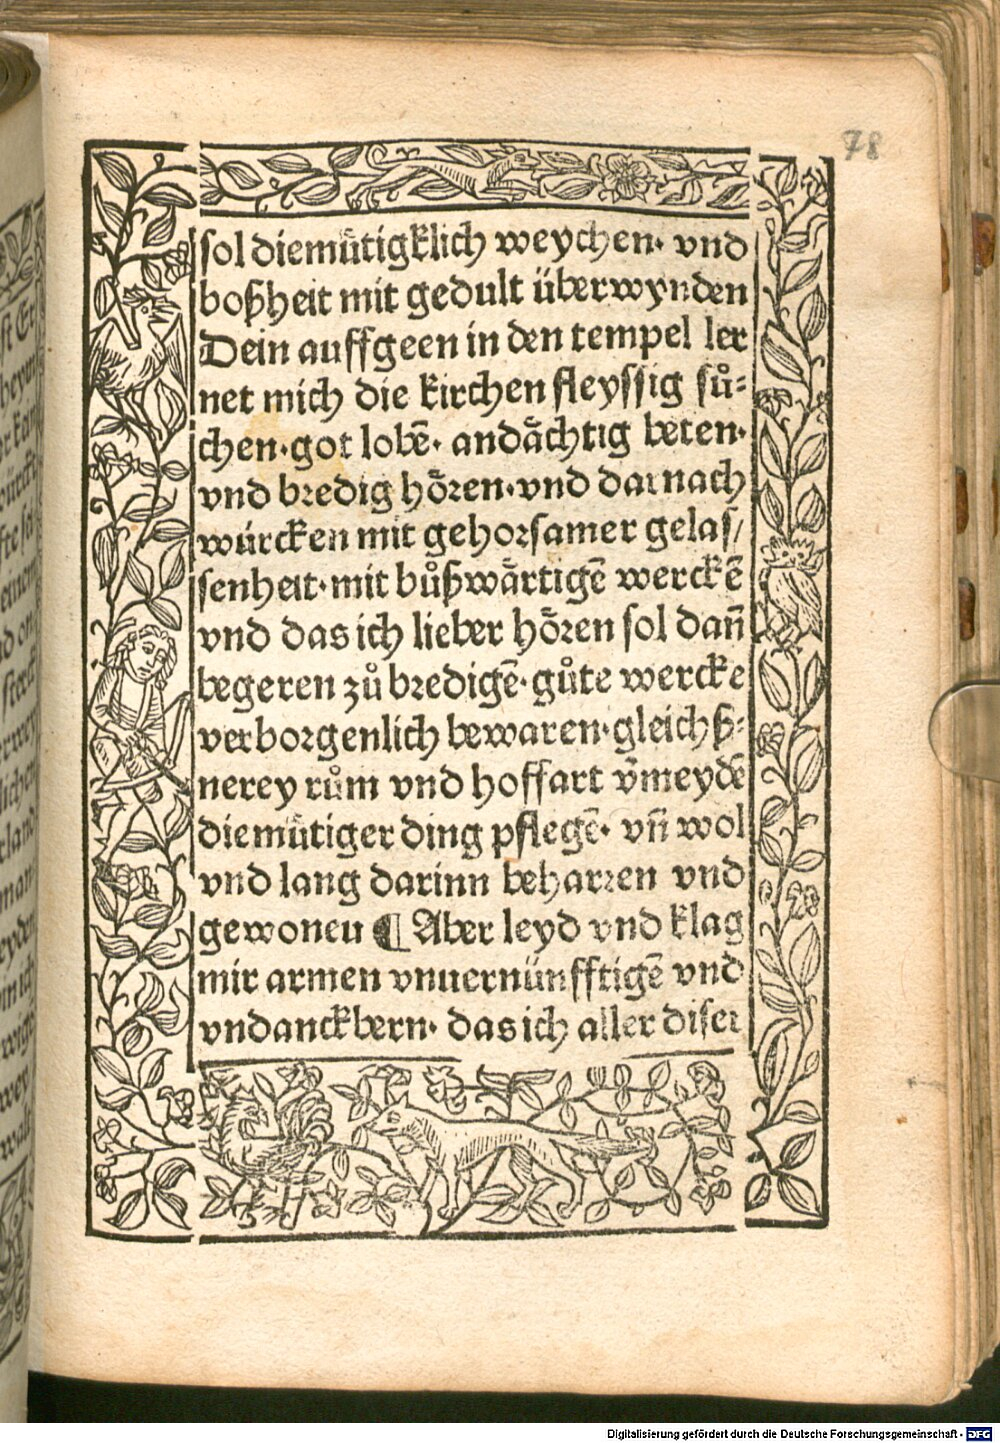 78
sol diemůtigklich weychen· vnd
boßheit mit gedult überwynden
Dein auffgeen in den tempel ler
net mich die kirchen fleyssig sů⸗
chen·got lobē· andåchtig beten·
vnd bredig hȯren·vnd darnach
würcken mit gehorsamer gelas/
senheit·mit bůßwårtigē werckē
vnd das ich lieber hȯren sol dañ
begeren zů bredigē·gůte wercke
verborgenlich bewaren·gleichß⸗
nerey rům vnd hoffart v̄meydē
diemůtiger ding pflegē· vñ wol
vnd lang darinn beharren vnd
gewonen ¶ Aber leyd vnd klag
mir armen vnuernünfftigē vnd
vndanckbern· das ich aller diser
Digitalisierung gefördert durch die Deutsche Forschungsgemeinschaft - DFG